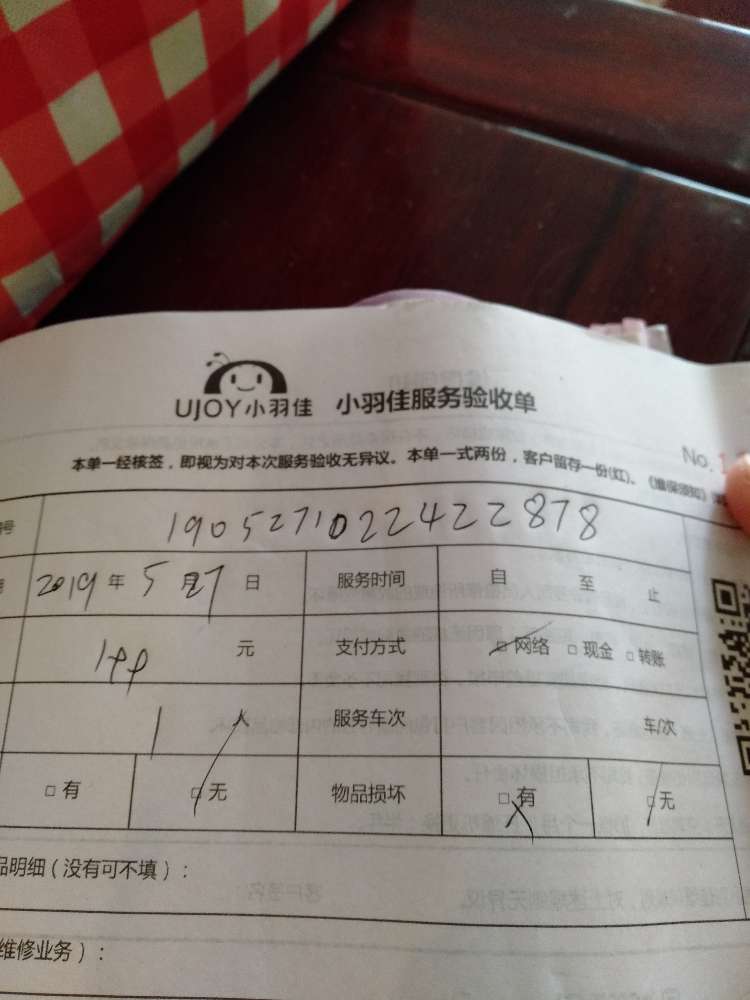 UJOY小羽佳 小羽佳服务验收单
No.1
本单一经核签，即视为对本次服务验收无异议。本单一式两份，客户留存一份(红)。《维保须知》
号 1905271022422878
2019年5月27日 服务时间 自 至 止
199元 支付方式 □网络 □现金 □转账
1 服务车次 车/次
□有 □无 物品损坏 □有 □无
品明细（没有可不填）：
维修业务）：